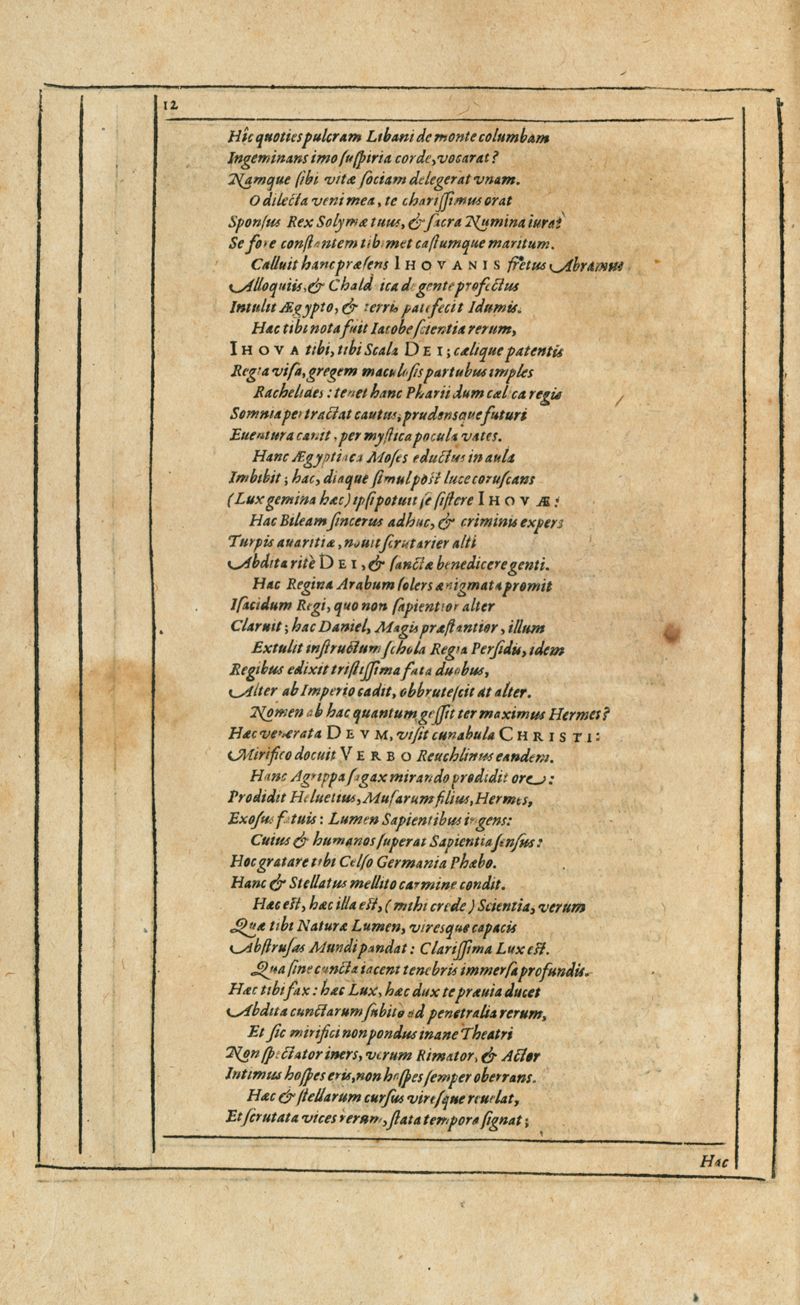 12
Hîc quoties pulcram Libani de monte columbam
Ingeminans imo suspiria corde, vocarat?
Namque sibi vitæ sociam delegerat vnam.
O dilecta veni mea, te charissimus orat
Sponsus Rex Solymæ tuus, & sacra Numina iurat
Se fore constantem tibimet castumque maritum.
Calluit hanc præsens IHOVANIS fretus Abramus
Alloquiis, & Chaldaica de gente profectus
Intulit Ægypto, & terris patefecit Idumis.
Hac tibi nota fuit Iacobe scientia rerum,
IHOVA tibi, tibi Scala DEI; cælique patentis
Regia visa, gregem maculosis partubus imples
Rachelides: tenet hanc Pharii dum cæl ca regis
Somnia pertractat cautus, prudensque futuri
Euentura canit, per mystica pocula vates.
Hanc Ægyptiaca Moses eductus in aula
Imbibit; hac, diaque simul post luce coruscans
(Lux gemina hæc) ipsi potuit se sistere IHOVÆ:
Hac Bileam sincerus adhuc, & criminis expers
Turpis auaritiæ, nouit scrutarier alti
Abdita ritè DEI, & sancta benedicere genti.
Hac Regina Arabum solers ænigmata promit
Isacidum Regi, quo non sapientior alter
Claruit; hac Daniel, Magis præstantior, illum
Extulit instructum schola Regia Persidis, idem
Regibus edixit tristissima fata duobus,
Alter ab Imperio cadit, obbrutescit at alter.
Nomen ab hac quantum gessit ter maximus Hermes?
Hæc venerata DEVM, visit cunabula CHRISTI:
Mirifico docuit VERBO Reuchlinus eandem.
Hanc Agrippa sagax mirando prodidit ore:
Prodidit Heluetius, Musarum filius, Hermes,
Exosus fatuis: Lumen Sapientibus ingens:
Cuius & humanos superat Sapientia sensus:
Hoc gratare tibi Celso Germania Phœbo.
Hanc & Stellatus mellito carmine condit.
Hæc est, hæc illa est, (mihi crede) Scientia, verum
Quæ tibi Naturæ Lumen, viresque capacis
Abstrusas Mundi pandat: Clarissima Lux est.
Qua sine cuncta iacent tenebris immersa profundis.
Hæc tibi fax: hæc Lux, hæc dux te præuia ducet
Abdita cunctarum subito ad penetralia rerum,
Et sic mirifici non pondus inane Theatri
Non spectator iners, verum Rimator, & Actor
Intimus hospes eris, non hospes semper oberrans.
Hæc & stellarum cursus viresque reuelat,
Et scrutata vices rerum, stata tempora signat;
Hac